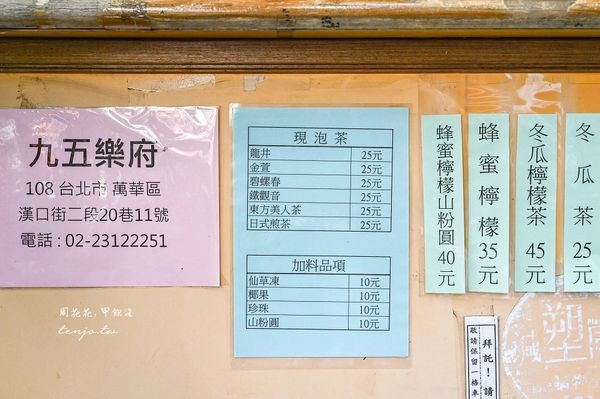 九五樂府
108 台北市 萬華區
漢口街二段20巷11號
電話 : 02-23122251
現泡茶
龍井 25元
金萱 25元
碧螺春 25元
鐵觀音 25元
東方美人茶 25元
日式煎茶 25元
加料品項
仙草凍 10元
椰果 10元
珍珠 10元
山粉圓 10元
蜂蜜檸檬山粉圓 40元
蜂蜜檸檬 35元
冬瓜檸檬茶 45元
冬瓜茶 25元
拜託！請
敬請保留一格車
塑
減
周花花，甲飽沒
tenjo.tw